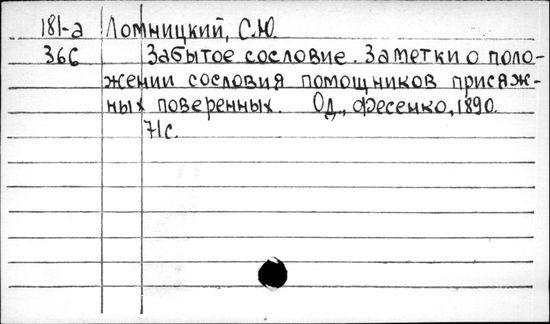 181-а Ломницкий, С.Ю.
366 Забытое сословие. Заметки о поло-
жении сословия помощников присяж-
ных поверенных. Од., Фесенко, 1890.
71с.